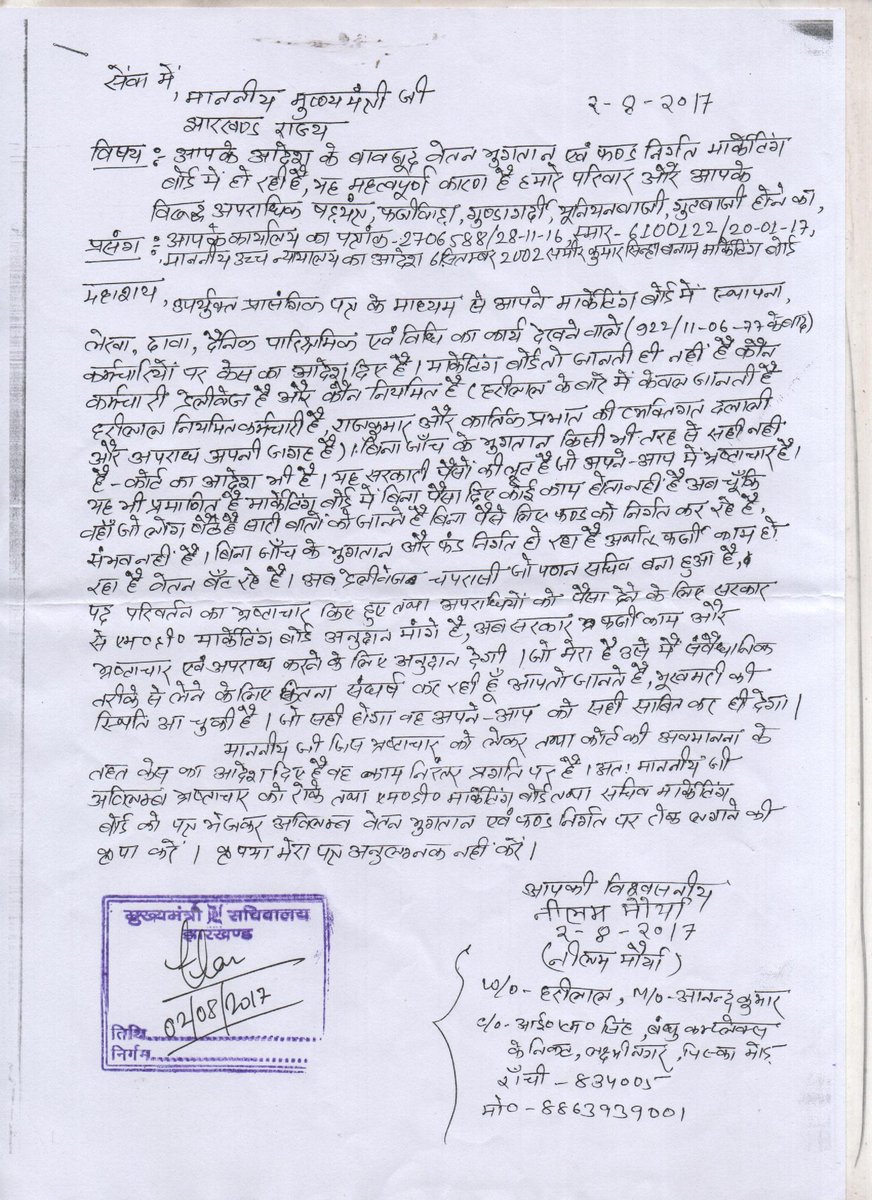 सेवा में,
माननीय मुख्यमंत्री जी
२-8-2017
झारखण्ड राज्य
विषय :- आपके आदेश के बावजूद वेतन भुगतान एवं फण्ड निर्गत मार्केटिंग
बोर्ड में हो रही है, यह महत्वपूर्ण कारण है हमारे परिवार और आपके
विरूद्ध अपराधिक षड्यंत्र, फर्जीवाड़ा, गुण्डागर्दी, यूनियनबाजी, गुटबाजी होने का,
प्रसंग :- आपके कार्यालय का पत्रांक-2706588/28-11-16, स्मार-6100122/20-01-17,
माननीय उच्च न्यायालय का आदेश 6 सितम्बर 2002 समीर कुमार सिन्हा बनाम मार्केटिंग बोर्ड
महाशय,
उपर्युक्त प्रासंगिक पत्र के माध्यम से आपने मार्केटिंग बोर्ड में स्थापना,
लेखा, दावा, दैनिक पारिश्रमिक एवं विधि का कार्य देखने वाले (922/11-06-77 के बाद)
कर्मचारियों पर केस का आदेश दिए है। मार्केटिंग बोर्ड तो जानती ही नहीं है कौन
कर्मचारी डेलीवेज है और कौन नियमित है (हरीलाल के बारे में केवल जानती है
हरीलाल नियमित कर्मचारी है, राजकुमार और कार्तिक प्रभात की व्यक्तिगत दलाली
और अपराध अपनी जगह है)। बिना जाँच के भुगतान किसी भी तरह से सही नहीं
है - कोर्ट का आदेश भी है। यह सरकारी पैसों की लूट है जो अपने-आप में भ्रष्टाचार है।
यह भी प्रमाणित है मार्केटिंग बोर्ड में बिना पैसा दिए कोई काम होता नहीं है अब चूँकि
वहाँ जो लोग बैठे है सारी बातों को जानते है बिना पैसे लिए फण्ड को निर्गत कर रहे है,
संभव नहीं है। बिना जाँच के भुगतान और फंड निर्गत हो रहा है अर्थात फर्जी काम हो
रहा है वेतन बँट रहे है। अब डेलीवेज चपरासी जो पणन सचिव बना हुआ है,
पद परिवर्तन का भ्रष्टाचार किए हुए तथा अपराधियों को पैसा देने के लिए सरकार
से एम०डी० मार्केटिंग बोर्ड अनुदान मांगे है, अब सरकार फर्जी काम और
भ्रष्टाचार एवं अपराध करने के लिए अनुदान देगी। जो मेरा है उसे मैं संवैधानिक
तरीके से लेने के लिए कितना संघर्ष कर रही हूँ आपतो जानते है, भूखमरी की
स्थिति आ चुकी है। जो सही होगा वह अपने-आप को सही साबित कर ही देगा।
माननीय जी जिस भ्रष्टाचार को लेकर तथा कोर्ट की अवमानना के
तहत केस का आदेश दिए है वह काम निरंतर प्रगति पर है। अतः माननीय जी
अविलम्ब भ्रष्टाचार को रोके तथा एम०डी० मार्केटिंग बोर्ड तथा सचिव मार्केटिंग
बोर्ड को पत्र भेजकर अविलम्ब वेतन भुगतान एवं फण्ड निर्गत पर रोक लगाने की
कृपा करें। कृपया मेरा पत्र अनुलग्नक नहीं करें।
आपकी विश्वसनीय
नीलम मौर्या
२-8-२०17
(नीलम मौर्या)
W/o- हरीलाल, M/o- आनन्द कुमार
C/o- आई०एम० सिंह, बंधु कम्पलेक्स
के निकट, लक्ष्मीनगर, पिस्का मोड़,
राँची - 834005
मो० - 8863939001
मुख्यमंत्री सचिवालय
झारखण्ड
02/08/2017
तिथि
निर्गम